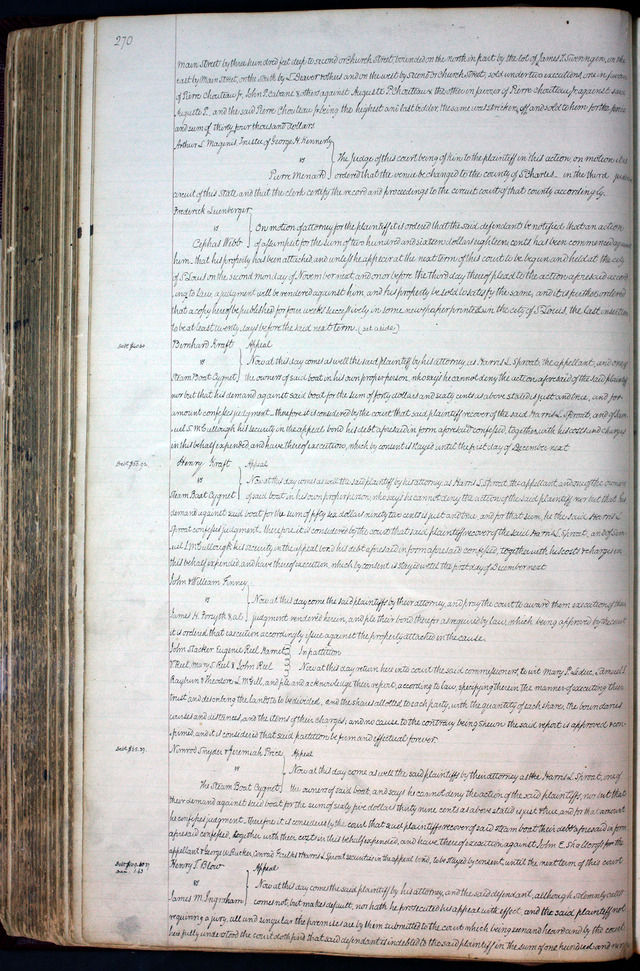 270
Main Street by three hundred feet deep to second or Church Street, bounded on the north in part by the lot of James T. Sweringen, on the
east by Main Street, on the South by and on the west by Second or Church Street, sold under two executions one in favor
of Pierre Chouteau Jr, John P. Cabanne & others against Auguste P. Chouteau & the other in favor of Pierre Chouteau Jr against said
Auguste P., and the said Pierre Chouteau Jr being the highest and last bidder, the same was stricken off and sold to him for the price
and sum of thirty four thousand dollars
Arthur L. Magenis, Trustee of George H. Kennerly
vs
The Judge of this court being of kin to the plaintiff in this action, on motion it is
Pierre Menard
ordered that the venue be changed to the county of St Charles in the third judicial
circuit of this State and that the clerk certify the record and proceedings to the circuit court of that county accordingly.
Frederick
vs
On motion of attorney for the plaintiff it is ordered that the said defendant be notified that an action
Cephas Webb
of assumpsit for the sum of two hundred and sixteen dollars eighteen cents has been commenced against
him, that his property has been attached and unless he appear at the next term of this court to be begun and held at the city
of St Louis on the second monday of November next, and on or before the third day thereof plead to the action aforesaid accord
ing to law, a judgment will be rendered against him, and his property be sold to satisfy the same, and it is further ordered
that a copy hereof be published for four weeks successively in some newspaper printed in the city of St Louis, the last insertion
to be at least twenty days before the said next term. (set aside)
Bernhard Kraft
Appeal
vs
Now at this day comes as well the said plaintiff by his attorney, as Harris L. Sproat, the appellant, and one of
Steam Boat Cygnet
the owners of said boat in his own proper person, who says he cannot deny the action aforesaid of the said plaintiff
nor but that his demand against said boat for the sum of forty dollars and sixty cents as above stated is just and true, and for that
amount confesses judgment. therefore it is considered by the court that said plaintiff recover of the said Harris L. Sproat, and of Sam
uel McCullough his security in the appeal bond his debt aforesaid in form aforesaid confessed, together with his costs and charges
in this behalf expended and have thereof execution, which by consent is stayed until the first day of December next
Henry Kraft
Appeal
vs
Now at this day comes as well the said plaintiff by his attorney as Harris L. Sproat, the appellant and one of the owners
Steam Boat Cygnet
of said boat in his own proper person, who says he cannot deny the action of the said plaintiff nor but that his
demand against said boat for the sum of fifty six dollars ninety two cents is just and true, and for that sum, he the said Harris L.
Sproat confesses judgment. therefore it is considered by the court that said plaintiff recover of the said Harris L. Sproat, and of Sam
uel McCullough his security in the appeal bond his debt aforesaid in form aforesaid confessed, together with his costs & charges in
this behalf expended and have thereof execution, which by consent is stayed until the first day of December next
John & William Finney
vs
Now at this day come the said plaintiffs by their attorney, and pray the court to award them execution of their
James H. Forsyth & al.
judgment rendered herein, and file their bond therefor as required by law, which being approved by the court
it is ordered that execution accordingly issue against the property attached in the cause.
John Stacker Eugenie Reel Harriet
In partition
Reel, Mary S. Reel & John Reel
Now at this day return here into court the said commissioners, to wit Mary P. Leduc, Samuel S.
Rayburn & Theodore L. McGill, and file and acknowledge their report, according to law, specifying therein the manner of executing their
trust and describing the lands to be divided, and the shares allotted to each party, with the quantity of each share, the boundaries
courses and distances, and the items of their charges, and no cause to the contrary being shewn the said report is approved & con
firmed, and it is considered that said partition be firm and effectual forever.
Nimrod Snyder & Jeremiah Price
Appeal
vs
Now at this day come as well the said plaintiffs by their attorney as the Harris L. Sproat, one of
The Steam Boat Cygnet
the owners of said boat, and says he cannot deny the action of the said plaintiffs, nor but that
their demand against said boat for the sum of sixty five dollars thirty nine cents as above stated is just & true and for that amount
he confesses judgment. therefore it is considered by the court that said plaintiffs recover of said steam boat their debt aforesaid in form
aforesaid confessed, together with their costs in this behalf expended, and have thereof execution against John E. Shallcross the
appellant & George W. Rucker, Conrad & Harris L. Sproat securities in the appeal bond, to be stayed by consent, until the next term of this court
Henry T. Blow
Appeal
vs
Now at this day comes the said plaintiff by his attorney, and the said defendant, although solemnly called
James M. Ingraham
comes not, but makes default, nor hath he prosecuted his appeal with effect, and the said plaintiff not
requiring a jury, all and singular the premises are by them submitted to the court which being seen and heard and by the court
here fully understood the court doth find that said defendant is indebted to the said plaintiff in the sum of one hundred and